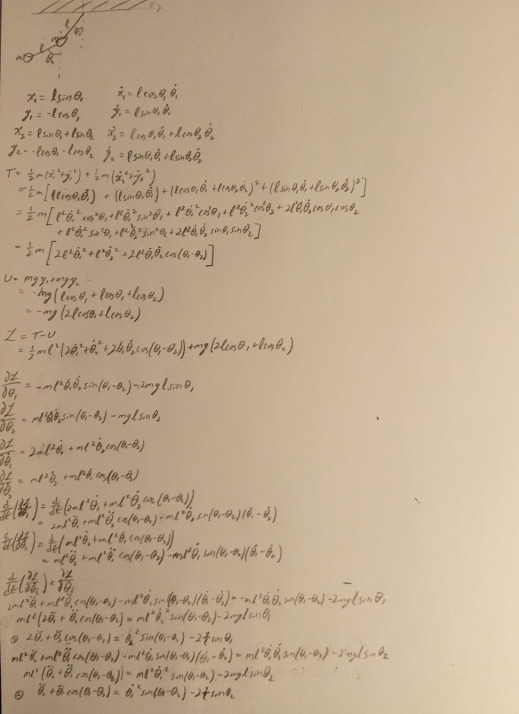 l
θ₁
m
l
m
θ₂
x₁ = l sinθ₁ ẋ₁ = l cosθ₁ θ̇₁
y₁ = -l cosθ₁ ẏ₁ = l sinθ₁ θ̇₁
x₂ = l sinθ₁ + l sinθ₂ ẋ₂ = l cosθ₁ θ̇₁ + l cosθ₂ θ̇₂
y₂ = -l cosθ₁ - l cosθ₂ ẏ₂ = l sinθ₁ θ̇₁ + l sinθ₂ θ̇₂
T = ½m(ẋ₁² + ẏ₁²) + ½m(ẋ₂² + ẏ₂²)
= ½m[(l cosθ₁ θ̇₁)² + (l sinθ₁ θ̇₁)² + (l cosθ₁ θ̇₁ + l cosθ₂ θ̇₂)² + (l sinθ₁ θ̇₁ + l sinθ₂ θ̇₂)²]
= ½m[l²θ̇₁² cos²θ₁ + l²θ̇₁² sin²θ₁ + l²θ̇₁² cos²θ₁ + l²θ̇₂² cos²θ₂ + 2l²θ̇₁θ̇₂ cosθ₁ cosθ₂
+ l²θ̇₁² sin²θ₁ + l²θ̇₂² sin²θ₂ + 2l²θ̇₁θ̇₂ sinθ₁ sinθ₂]
= ½m[2l²θ̇₁² + l²θ̇₂² + 2l²θ̇₁θ̇₂ cos(θ₁-θ₂)]
U = mgy₁ + mgy₂
= -mg(l cosθ₁ + l cosθ₁ + l cosθ₂)
= -mg(2l cosθ₁ + l cosθ₂)
L = T - U
= ½ml²(2θ̇₁² + θ̇₂² + 2θ̇₁θ̇₂ cos(θ₁-θ₂)) + mg(2l cosθ₁ + l cosθ₂)
∂L/∂θ₁ = -ml²θ̇₁θ̇₂ sin(θ₁-θ₂) - 2mgl sinθ₁
∂L/∂θ₂ = ml²θ̇₁θ̇₂ sin(θ₁-θ₂) - mgl sinθ₂
∂L/∂θ̇₁ = 2ml²θ̇₁ + ml²θ̇₂ cos(θ₁-θ₂)
∂L/∂θ̇₂ = ml²θ̇₂ + ml²θ̇₁ cos(θ₁-θ₂)
d/dt(∂L/∂θ̇₁) = d/dt(2ml²θ̇₁ + ml²θ̇₂ cos(θ₁-θ₂))
= 2ml²θ̈₁ + ml²θ̈₂ cos(θ₁-θ₂) - ml²θ̇₂ sin(θ₁-θ₂)(θ̇₁-θ̇₂)
d/dt(∂L/∂θ̇₂) = d/dt(ml²θ̇₂ + ml²θ̇₁ cos(θ₁-θ₂))
= ml²θ̈₂ + ml²θ̈₁ cos(θ₁-θ₂) - ml²θ̇₁ sin(θ₁-θ₂)(θ̇₁-θ̇₂)
d/dt(∂L/∂θ̇) = ∂L/∂θ
2ml²θ̈₁ + ml²θ̈₂ cos(θ₁-θ₂) - ml²θ̇₂ sin(θ₁-θ₂)(θ̇₁-θ̇₂) = -ml²θ̇₁θ̇₂ sin(θ₁-θ₂) - 2mgl sinθ₁
ml²(2θ̈₁ + θ̈₂ cos(θ₁-θ₂)) = ml²θ̇₂² sin(θ₁-θ₂) - 2mgl sinθ₁
① 2θ̈₁ + θ̈₂ cos(θ₁-θ₂) = θ̇₂² sin(θ₁-θ₂) - 2 g/l sinθ₁
ml²θ̈₂ + ml²θ̈₁ cos(θ₁-θ₂) - ml²θ̇₁ sin(θ₁-θ₂)(θ̇₁-θ̇₂) = ml²θ̇₁θ̇₂ sin(θ₁-θ₂) - 2mgl sinθ₂
ml²(θ̈₂ + θ̈₁ cos(θ₁-θ₂)) = ml²θ̇₁² sin(θ₁-θ₂) - 2mgl sinθ₂
② θ̈₂ + θ̈₁ cos(θ₁-θ₂) = θ̇₁² sin(θ₁-θ₂) - 2 g/l sinθ₂